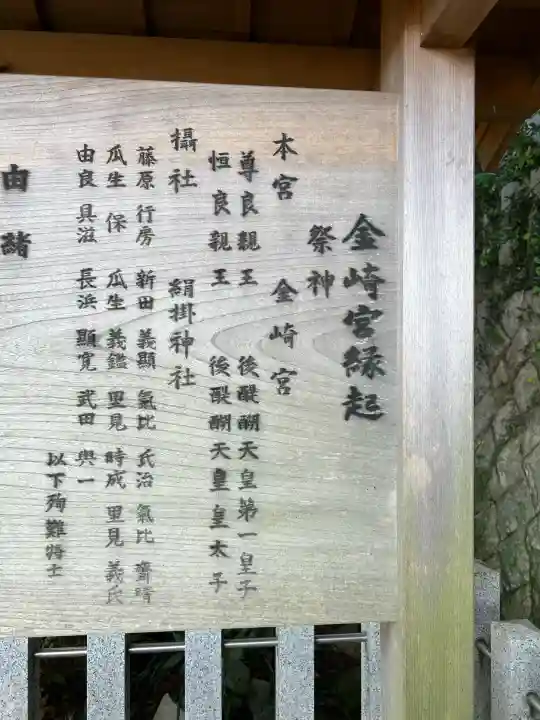 金崎宮縁起
祭神
本宮 金崎宮
尊良親王 後醍醐天皇第一皇子
恒良親王 後醍醐天皇皇太子
攝社 絹掛神社
藤原 行房 新田 義顯 氣比 氏治 氣比 齋晴
瓜生 保 瓜生 義鑑 里見 時成 里見 義氏
由良 具滋 長浜 顯寛 武田 與一
以下殉難将士
由緒